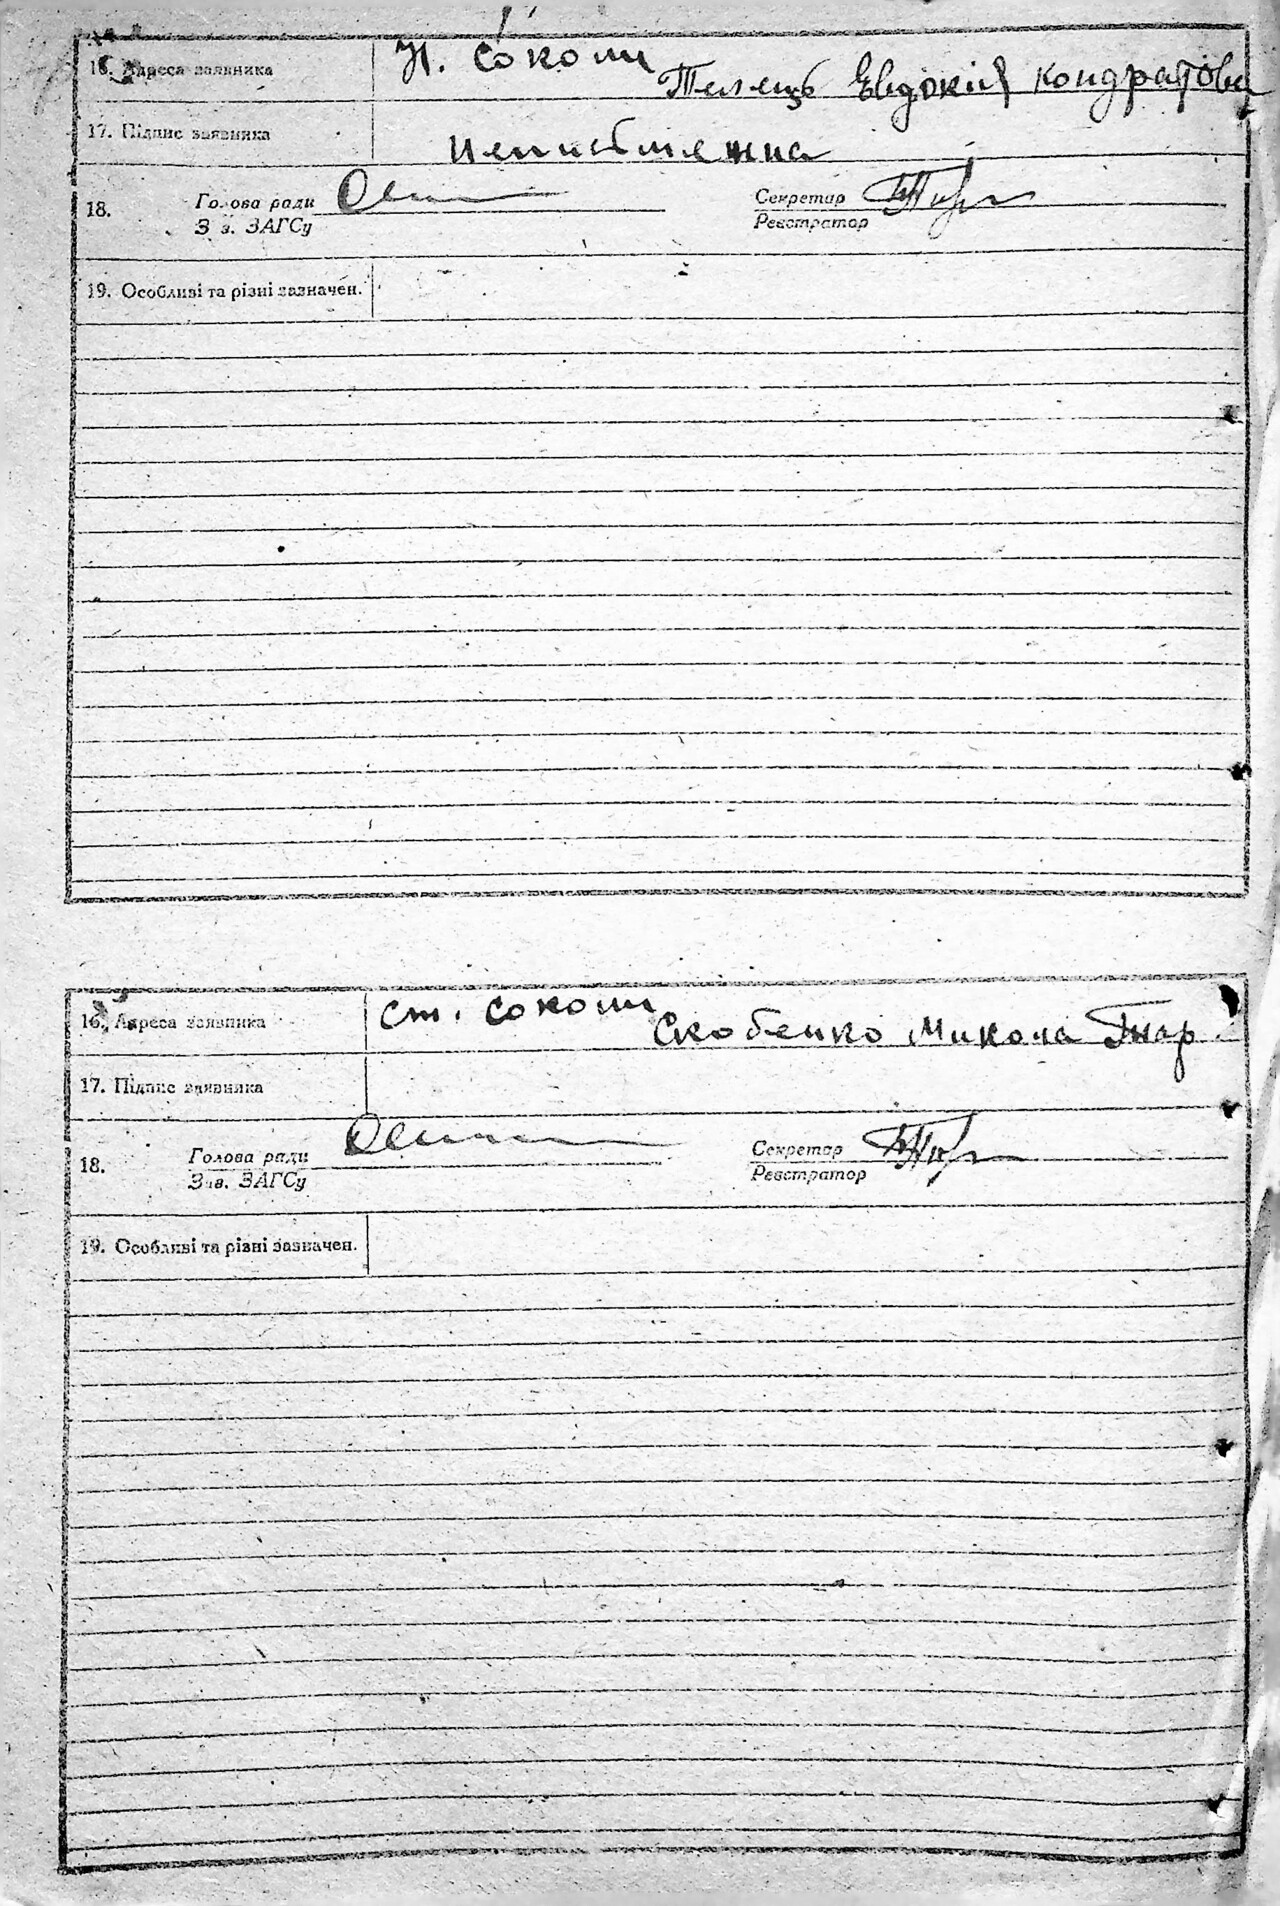 16. Адреса заявника Н. Соколи
Телець Евдокія Кондратова
17. Підпис заявника неписьменна
18. Голова ради Секретар
Зав. ЗАГСу Реєстратор
19. Особливі та різні зазначен.
16. Адреса заявника ст. Соколи
Скобенко Микола Гнар
17. Підпис заявника
18. Голова ради Секретар
Зав. ЗАГСу Реєстратор
19. Особливі та різні зазначен.